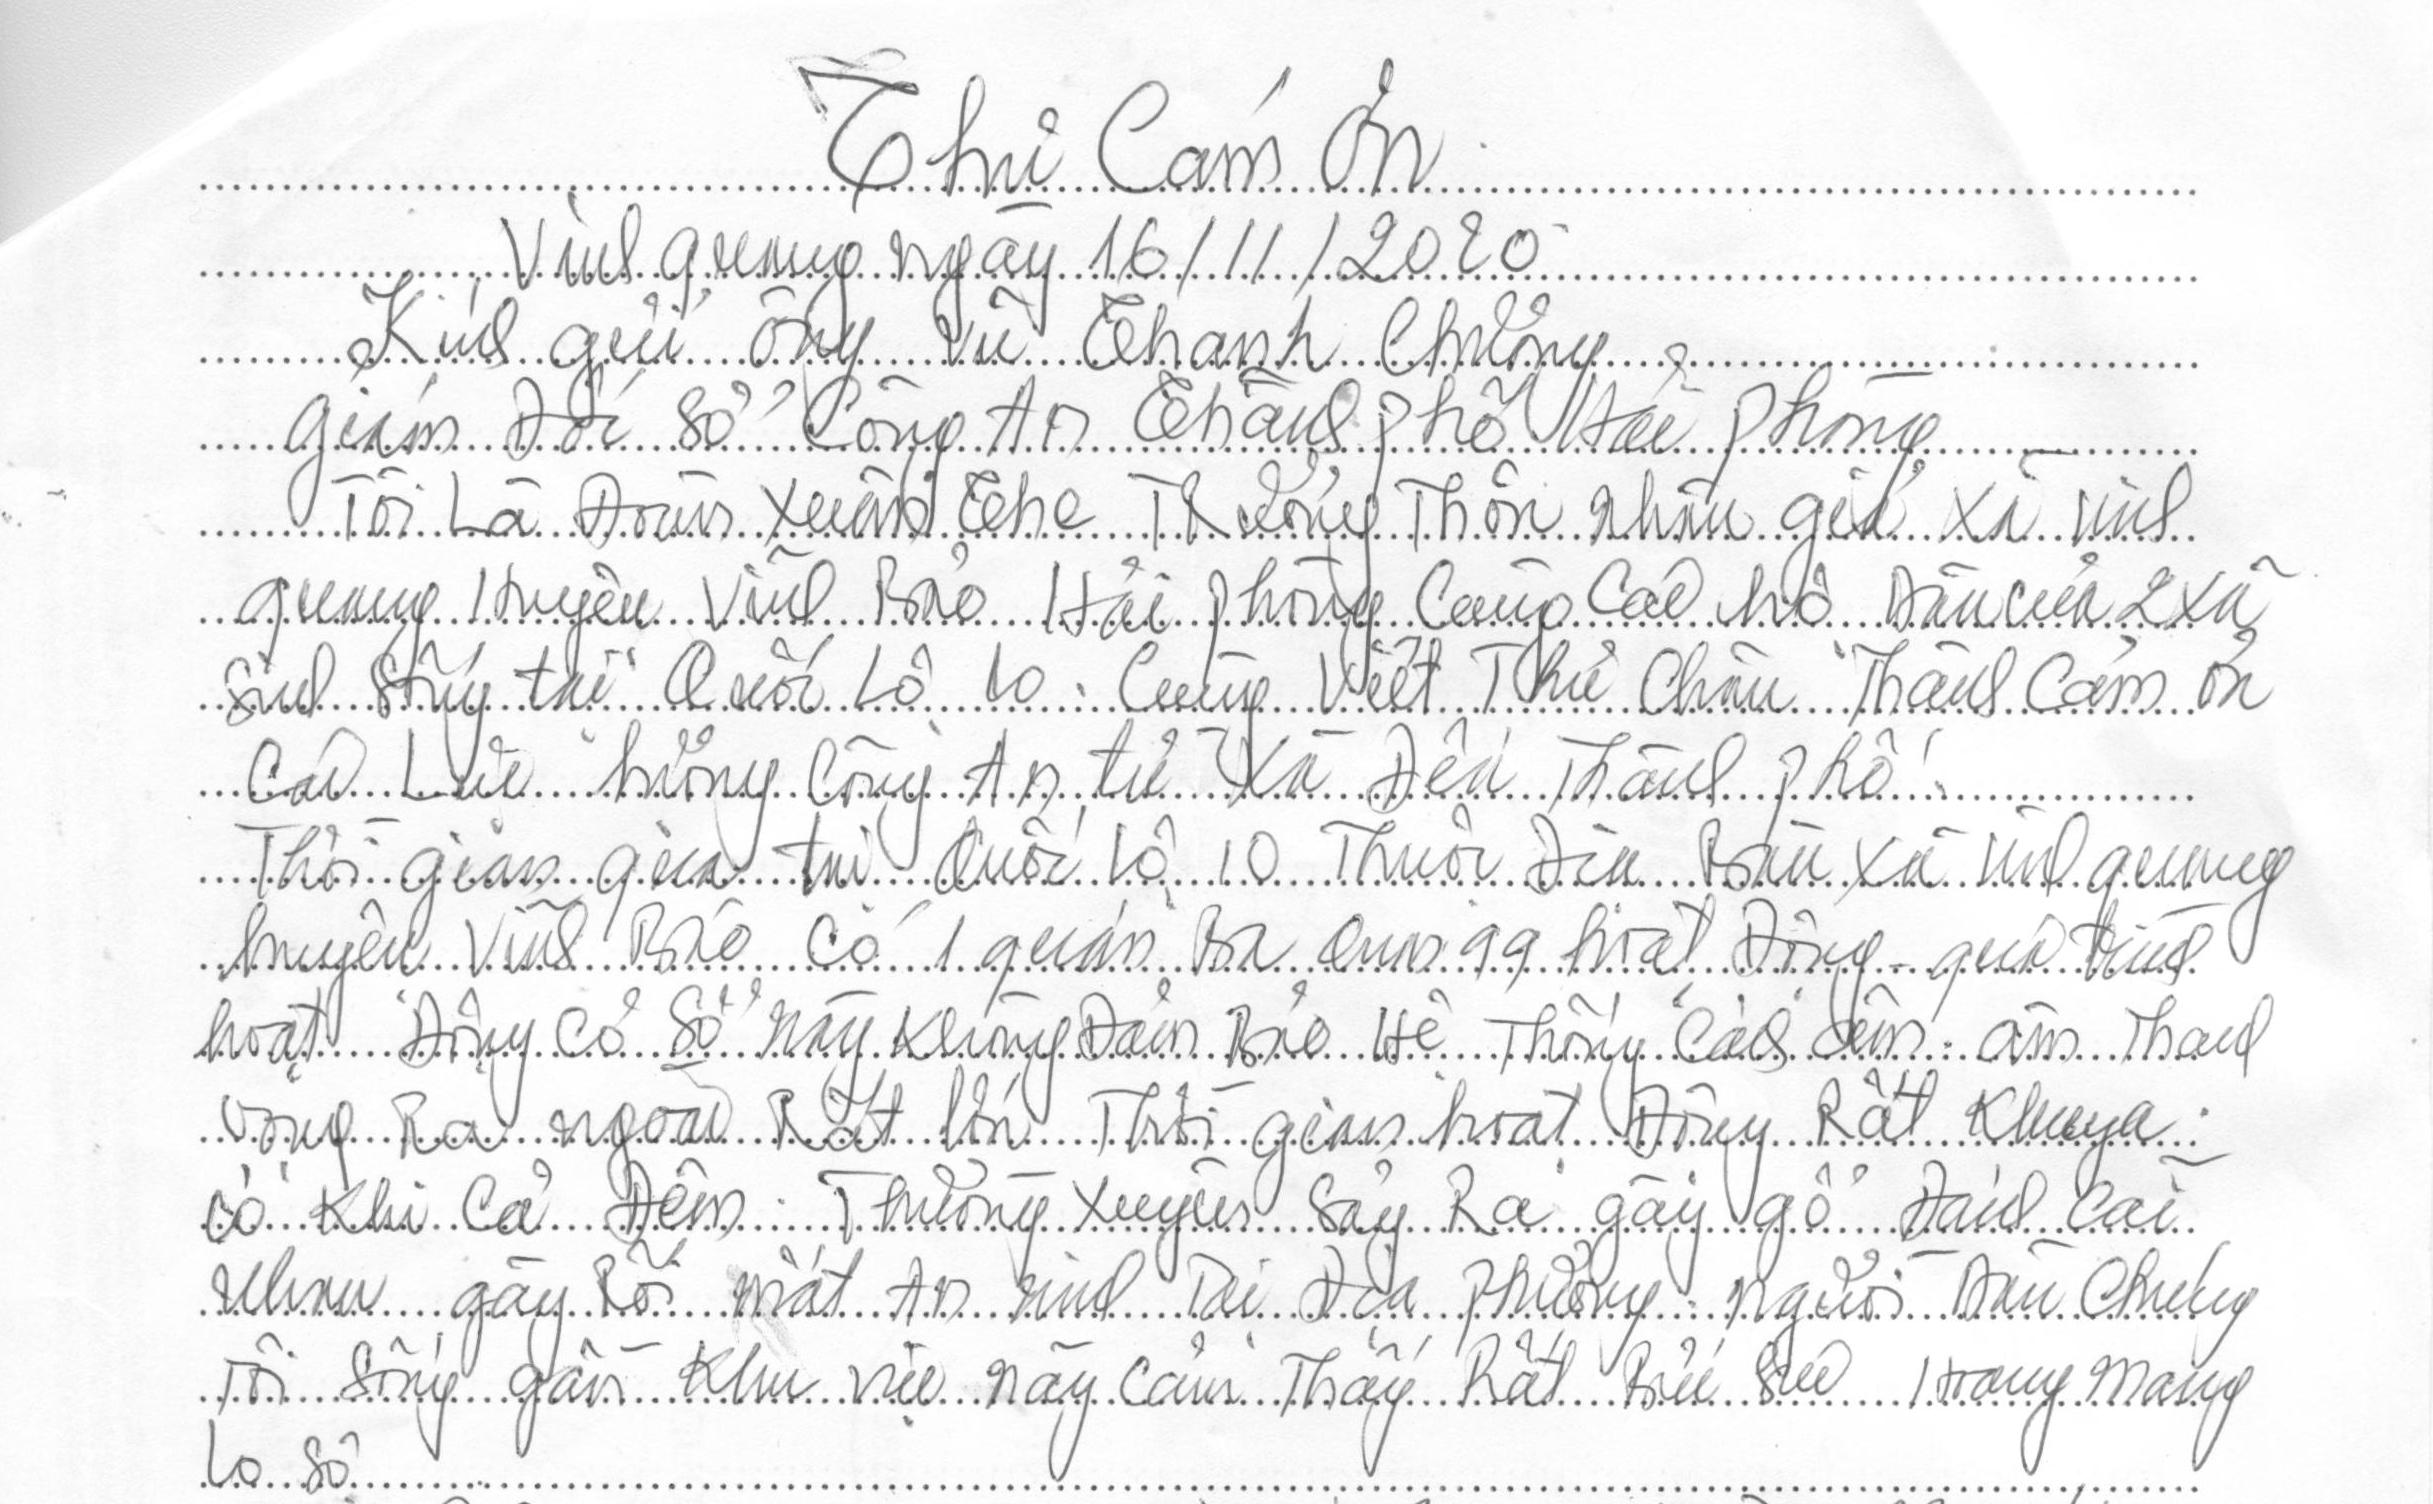 Thư Cám Ơn
Vinh quang ngày 16/11/2020
Kính gửi ông Vũ Thanh Chương
giám Đốc Sở Công An Thành phố Hải phòng
Tôi Là Đoàn Xuân The Trưởng Thôn Nhân giả Xã Vinh
quang Huyện Vĩnh Bảo Hải phòng Cùng Các hộ Dân của 2 Xã
Sinh Sống tại Quốc Lộ 10. Cùng Viết Thư Chân Thành Cám ơn
Các Lực lượng Công An từ Xã Đến Thành phố.
Thời gian qua tại Quốc lộ 10 Thuộc Địa Bàn Xã Vinh quang
huyện Vĩnh Bảo Có 1 quán Ba 99 hoạt Động - quá trình
hoạt Động Cơ Sở này Không Đảm Bảo Hệ Thống Cách âm. âm Thanh
Vọng Ra ngoài Rất lớn Thời gian hoạt Động Rất Khuya.
Có Khi Cả Đêm. Thường Xuyên Sảy Ra gây gổ Đánh Cãi
Nhau gây Rối mất An ninh Tại Địa phương. người Dân Chúng
Tôi Sống gần Khu vực này Cảm Thấy Rất Bức Súc Hoang Mang
lo Sợ